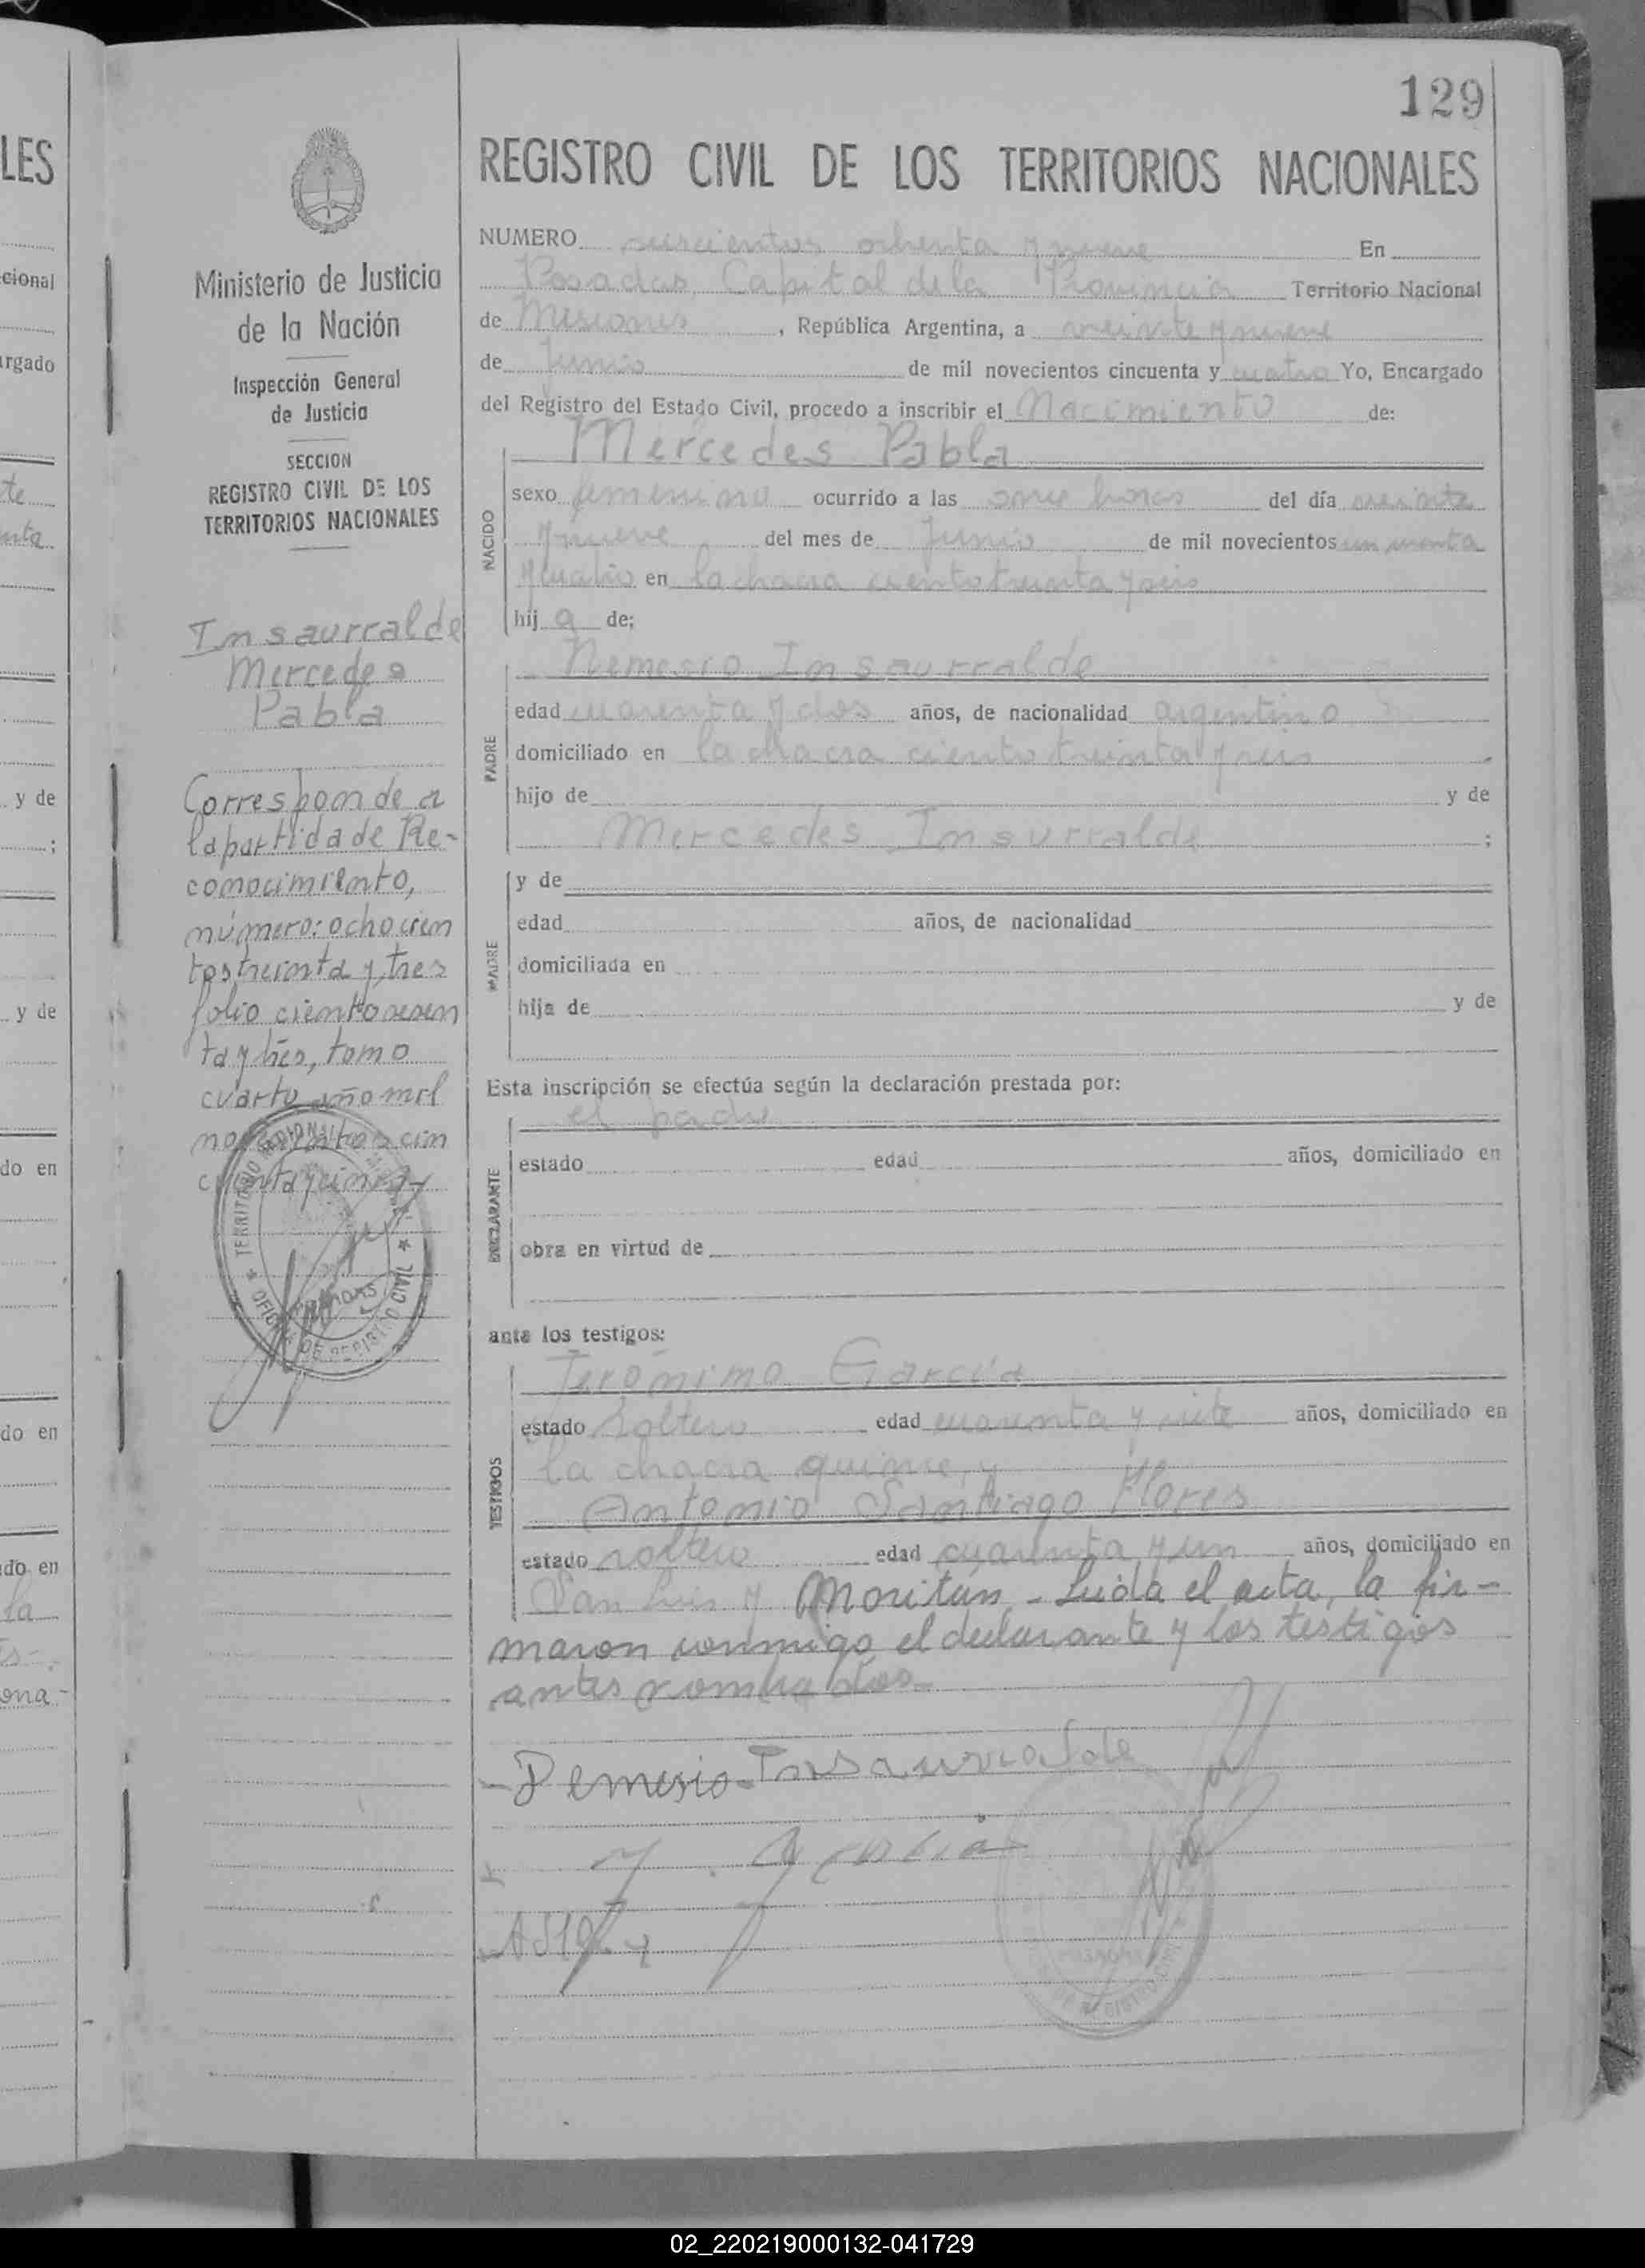 129
LES
cional
argado
te
nta
y de
;
y de
do en
do en
do en
la
ona-
Ministerio de Justicia
de la Nación
Inspección General
de Justicia
SECCION
REGISTRO CIVIL DE LOS
TERRITORIOS NACIONALES
Insaurralde
Mercedes
Pabla
Corresponde a
la partida de Re-
conocimiento,
número: ochocien
tos treinta y tres
folio ciento sesen
ta y tres, tomo
cuarto año mil
novecientos cin
cuenta y cinco-
TERRITORIO NACIONAL
OFICINA DE REGISTRO CIVIL
POSADAS
REGISTRO CIVIL DE LOS TERRITORIOS NACIONALES
NUMERO seiscientos ochenta y nueve En
Posadas, Capital de la Provincia Territorio Nacional
de Misiones, República Argentina, a veinte y nueve
de Junio de mil novecientos cincuenta y cuatro Yo, Encargado
del Registro del Estado Civil, procedo a inscribir el Nacimiento de:
Mercedes Pabla
NACIDO
sexo femenino ocurrido a las once horas del día veinte
y nueve del mes de Junio de mil novecientos cincuenta
y cuatro en la chacra ciento treinta y seis
hij a de;
PADRE
Nemesio Insaurralde
edad cuarenta y dos años, de nacionalidad argentino
domiciliado en la chacra ciento treinta y seis
hijo de y de
Mercedes Insurralde ;
MADRE
y de
edad años, de nacionalidad
domiciliada en
hija de y de
Esta inscripción se efectúa según la declaración prestada por:
DECLARANTE
el padre
estado edad años, domiciliado en
obra en virtud de
ante los testigos:
TESTIGOS
Jerónimo García
estado soltero edad cuarenta y siete años, domiciliado en
la chacra quince, y
Antonio Santiago Flores
estado soltero edad cuarenta y un años, domiciliado en
San Luis y Moritán - Leída el acta, la fir-
maron conmigo el declarante y los testigos
antes nombrados-
-Nemesio-Insaurralde
02_220219000132-041729